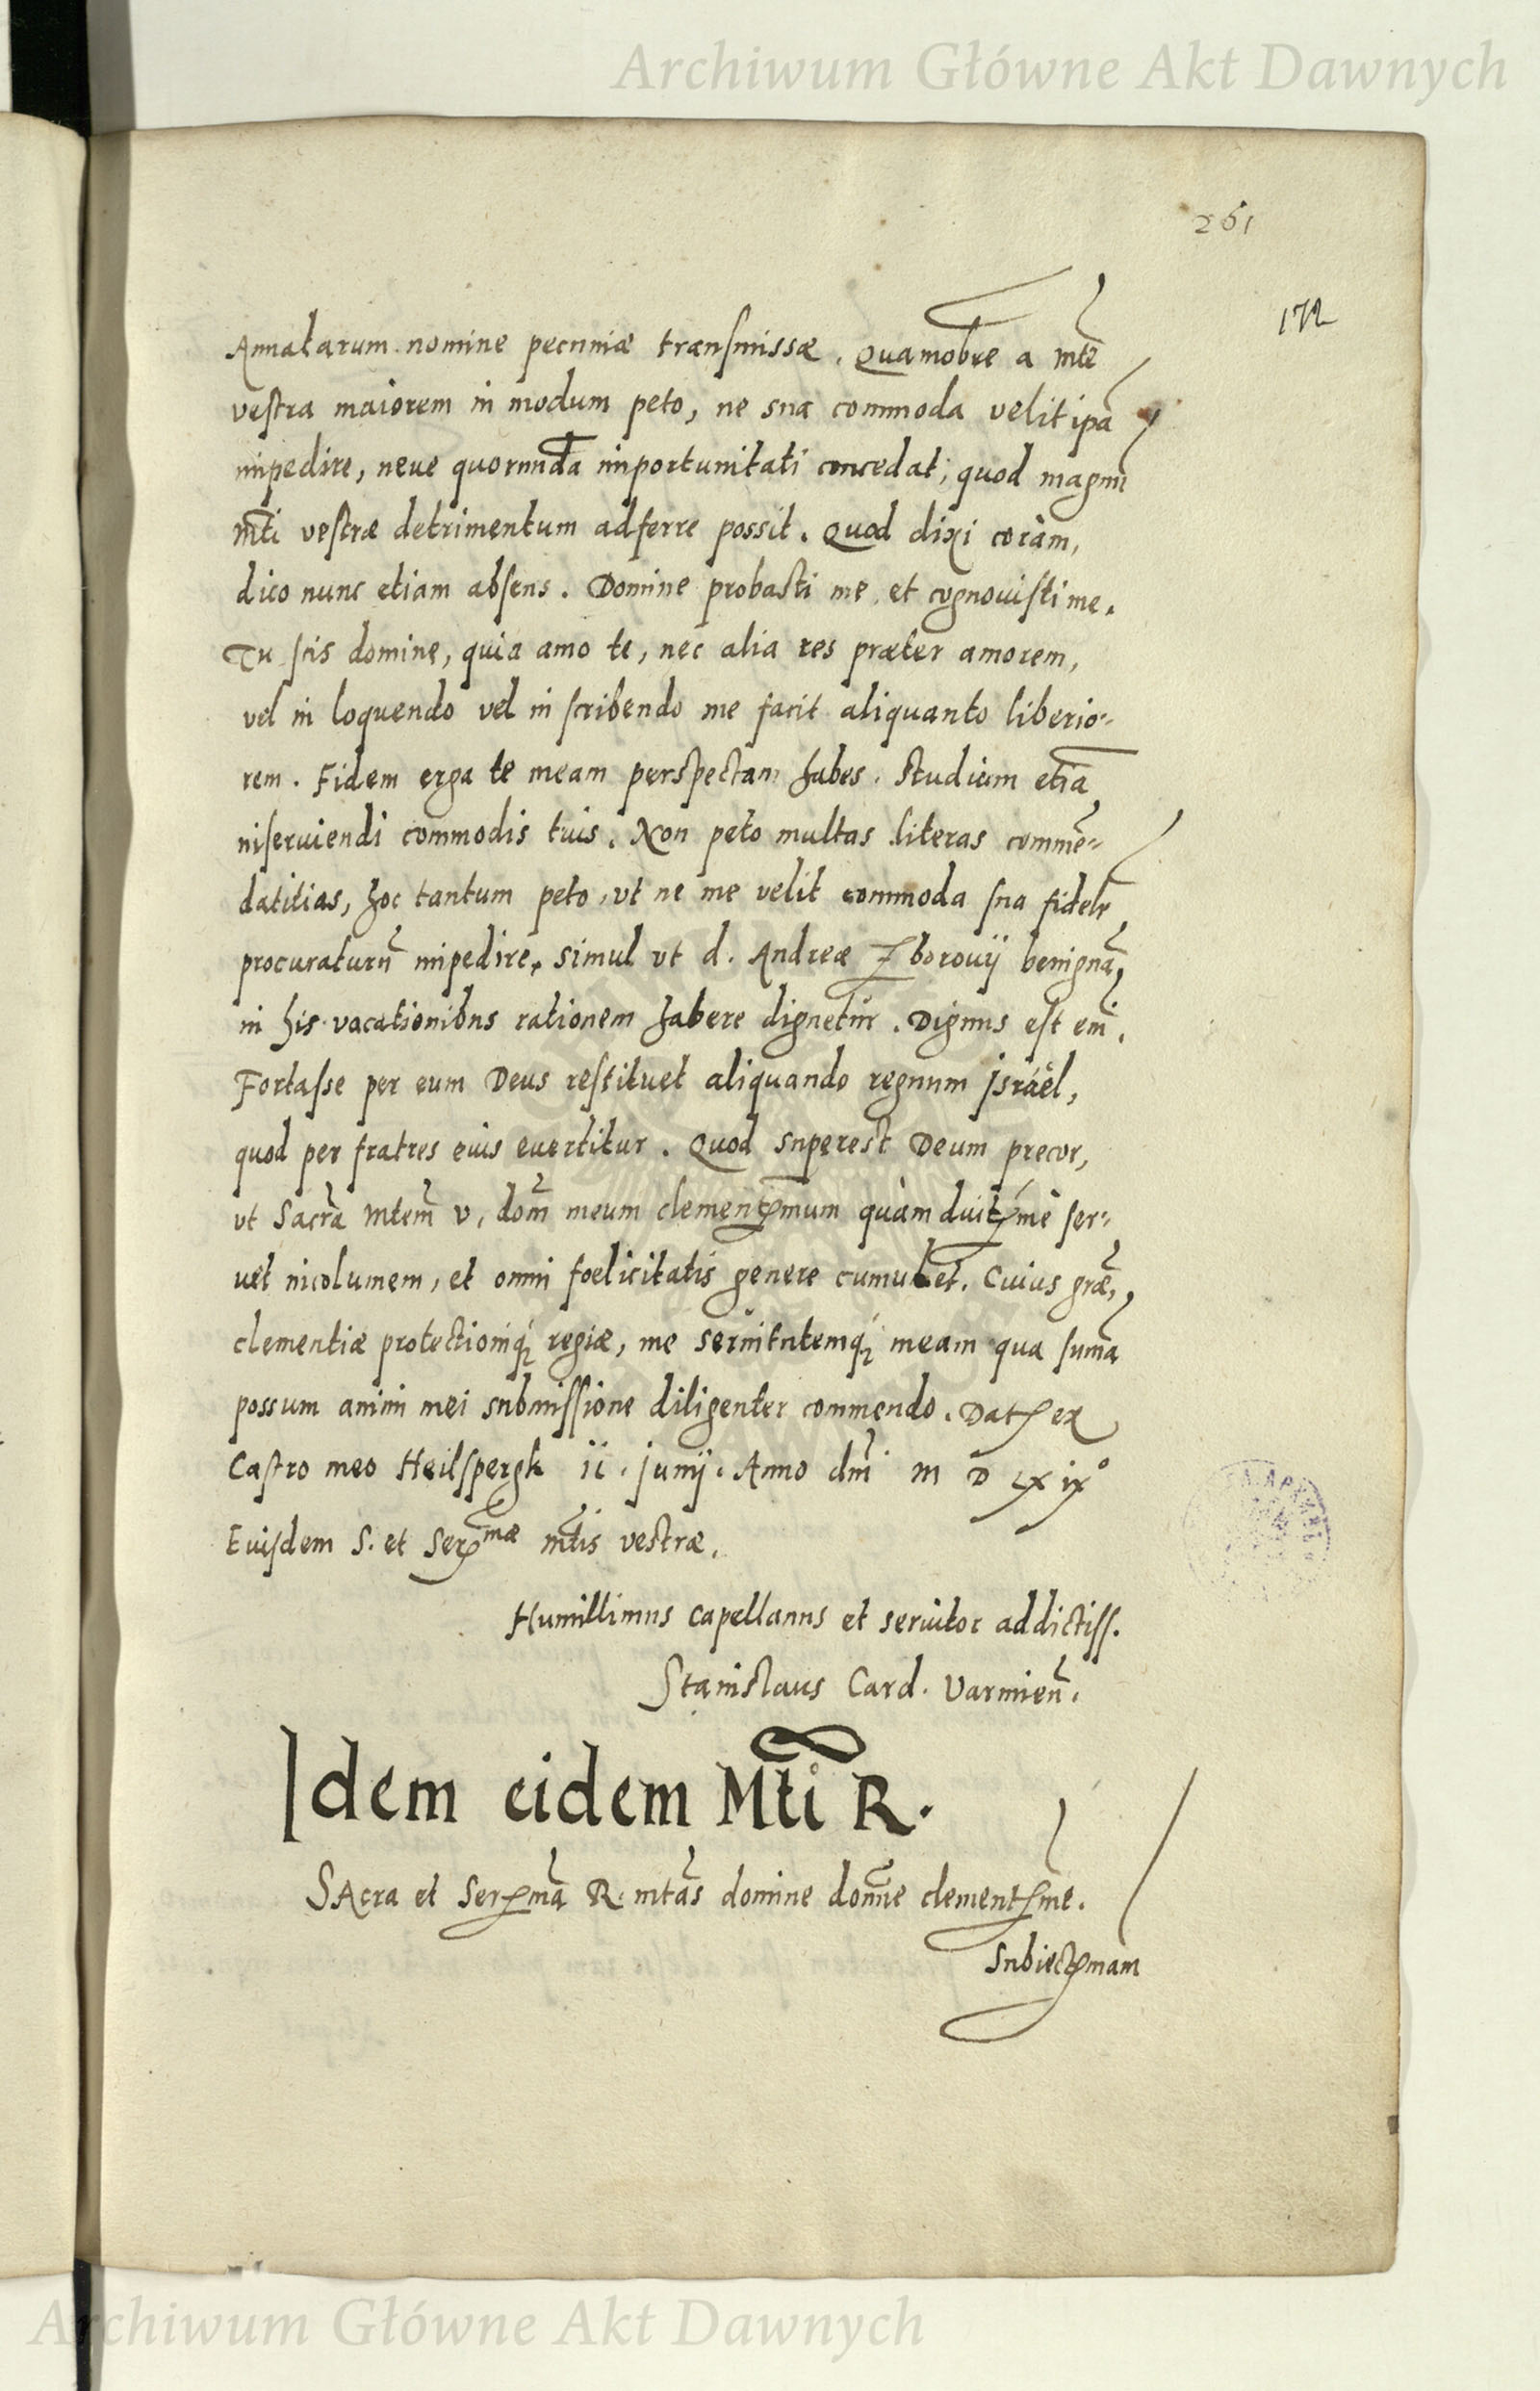 Archiwum Główne Akt Dawnych
261
172
Annatarum nomine pecuniæ transmissæ. Quamobrē a mtē
vestra maiorem in modum peto, ne sua commoda velit ipā
impedire, neue quorundā importunitati concedat, quod magnū
mti vestræ detrimentum adferre possit. Quod dixi coràm,
dico nunc etiam absens. Domine probasti me et cognouisti me.
Tu scis domine, quia amo te, nec alia res præter amorem,
vel in loquendo vel in scribendo me facit aliquanto liberio-
rem. Fidem erga te meam perspectam habes. Studium etiā
inseruiendi commodis tuis. Non peto multas literas commē-
datitias, hoc tantum peto, vt ne me velit commoda sua fidelr
procuraturū impedire, simul vt d. Andreæ Zborouij benignā
in his vacationibus rationem habere dignetur. Dignus est eni.
Fortasse per eum Deus restituet aliquando regnum Israël,
quod per fratres eius euertitur. Quod superest Deum precor,
vt Sacrā mtem v. dom meum clementmum quàm diutme ser-
uet incolumem, et omni foelicitatis genere cumulet. Cuius græ,
clementiæ protectioniq; regiæ, me seruitutemq; meam qua sumā
possum animi mei submissione diligenter commendo. Dat ex
Castro meo Heilspergk ii. Junij. Anno dni M D LX ix°
Eiusdem S. et Ser mæ mtis vestræ.
Humillimus capellanus et seruitor addictiss.
Stanislaus Card. Varmien.
Idem eidem Mti R.
SAcra et Ser mā R. mtas domine domne clementme.
Subiectmam
Archiwum Główne Akt Dawnych